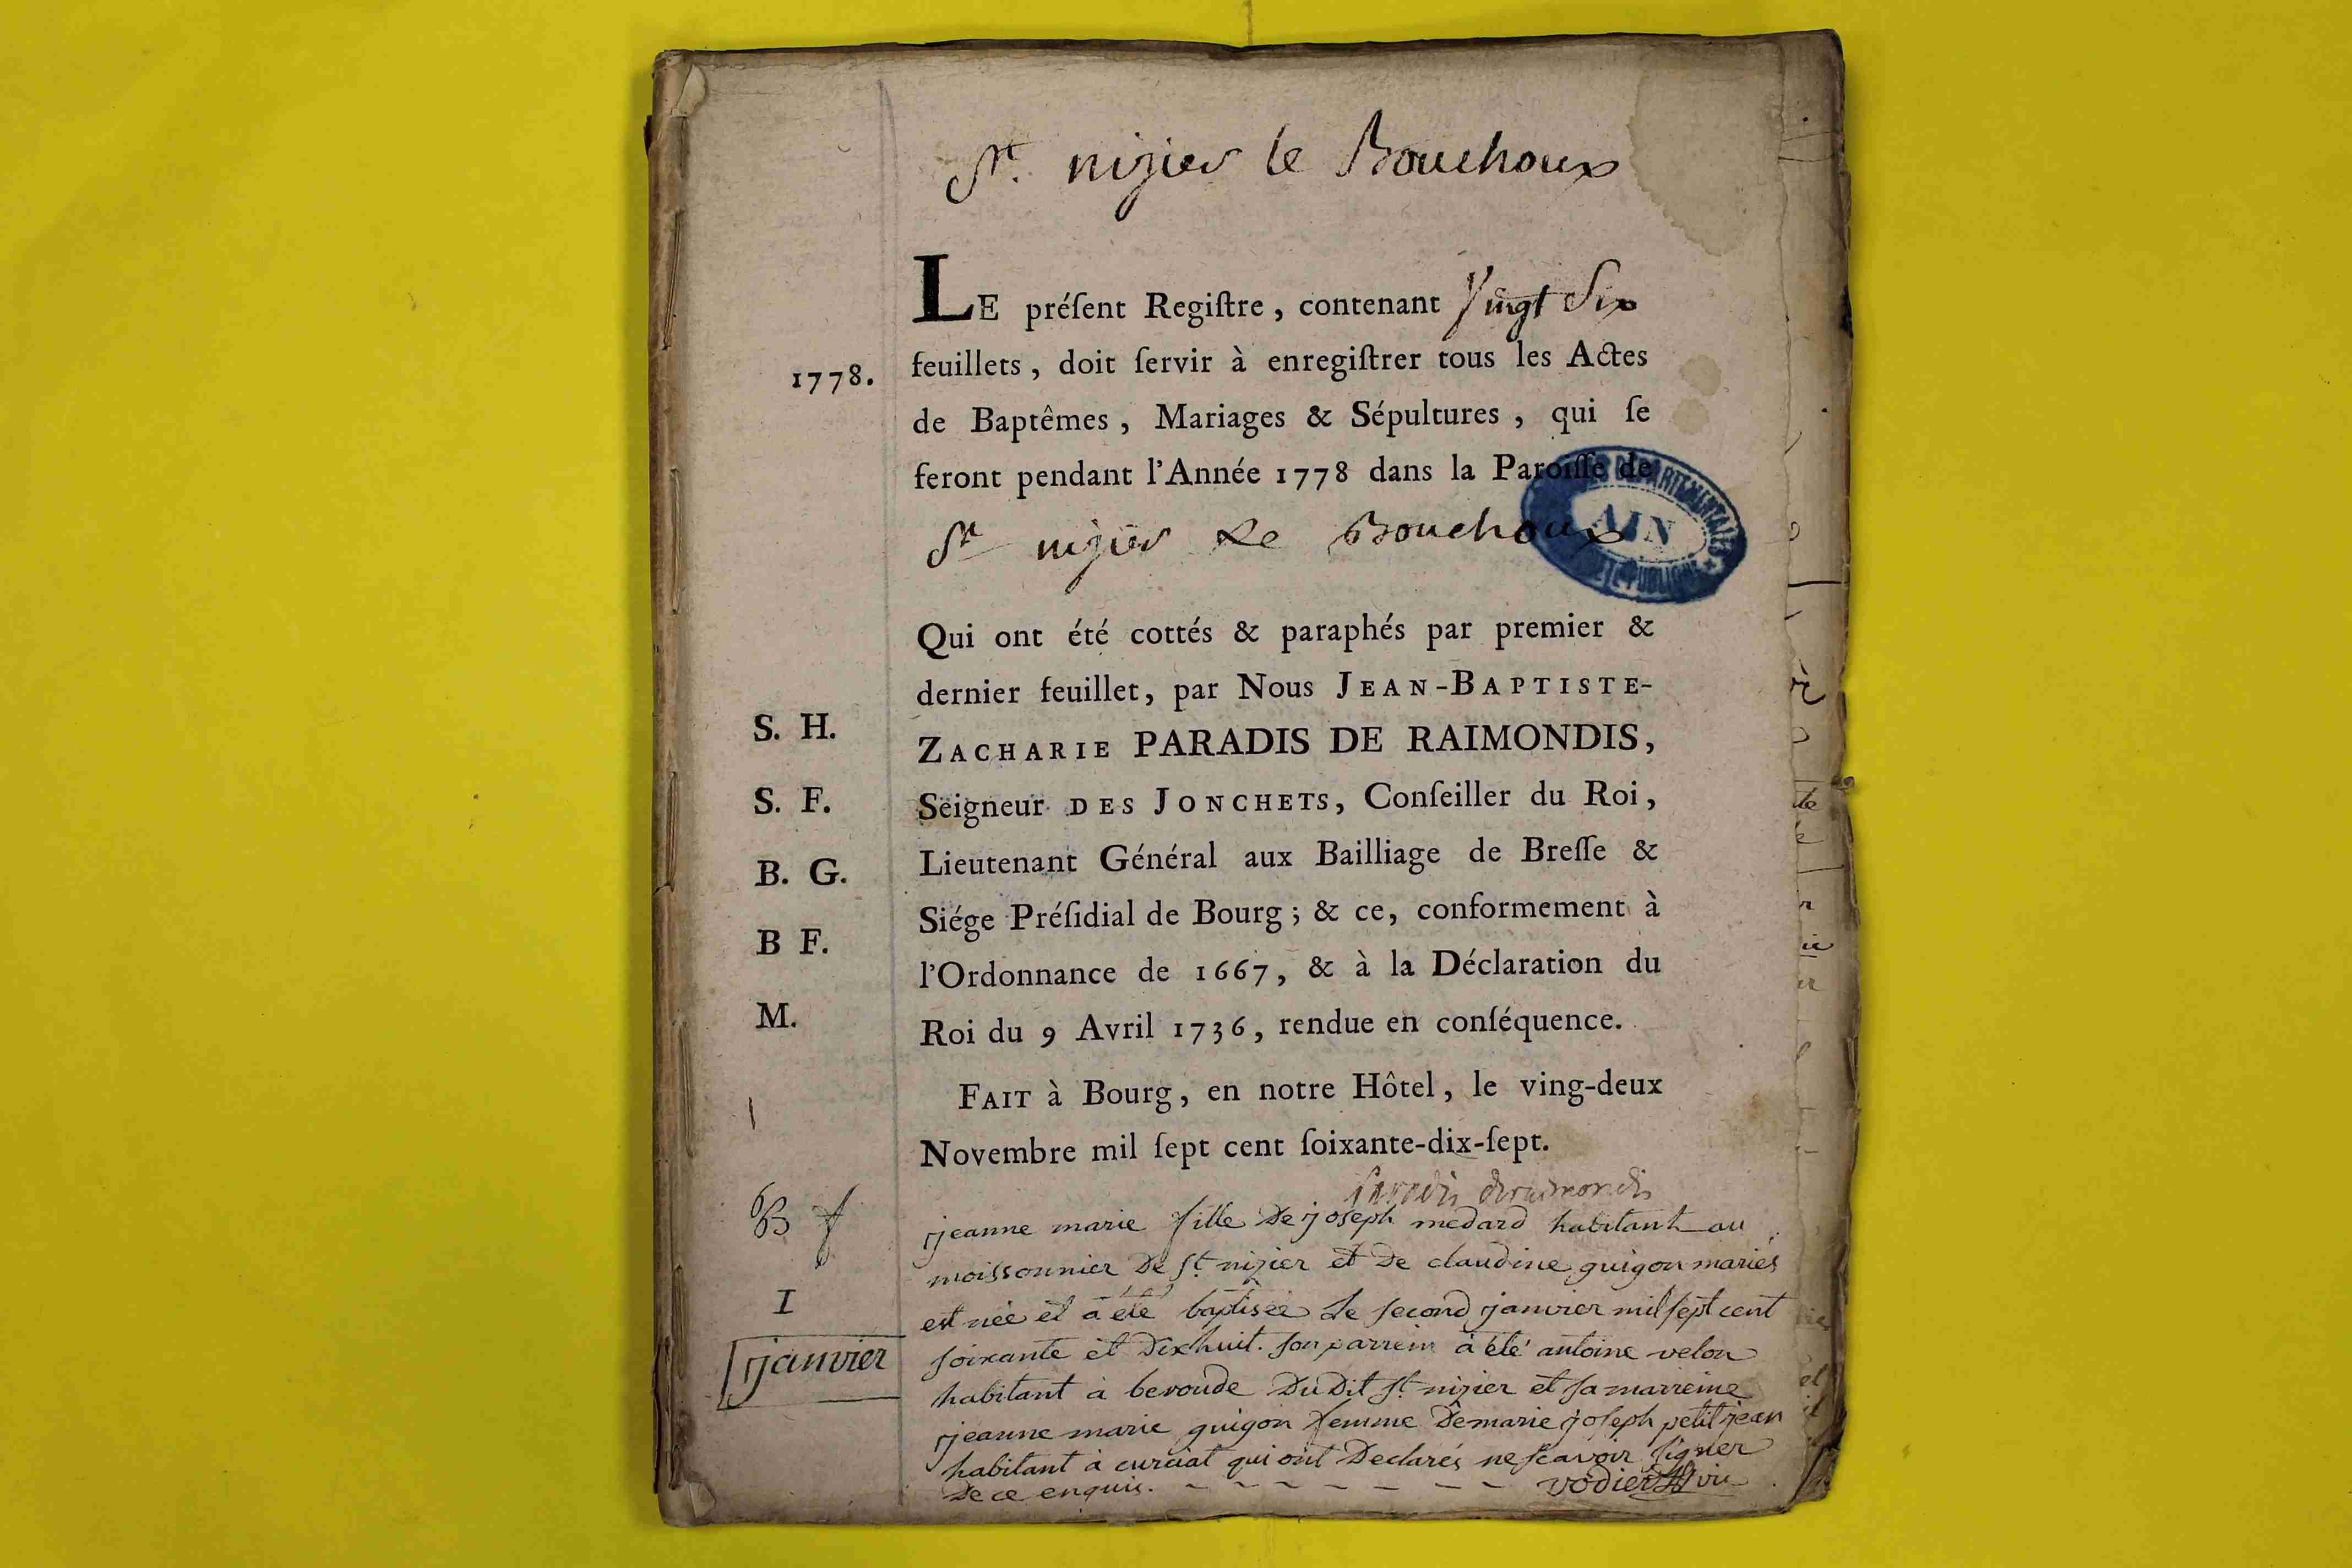 St. nizier le Bouchoux
LE préſent Regiſtre, contenant Vingt Six
feuillets, doit ſervir à enregiſtrer tous les Actes
1778.
de Baptêmes, Mariages & Sépultures, qui ſe
feront pendant l'Année 1778 dans la Paroiſſe de
St nizier Le Bouchoux
DEPARTEMENTALES
AIN
Qui ont été cottés & paraphés par premier &
dernier feuillet, par Nous JEAN-BAPTISTE-
S. H.
ZACHARIE PARADIS DE RAIMONDIS,
S. F.
Seigneur DES JONCHETS, Conſeiller du Roi,
B. G.
Lieutenant Général aux Bailliage de Breſſe &
Siége Préſidial de Bourg; & ce, conformement à
B F.
l'Ordonnance de 1667, & à la Déclaration du
M.
Roi du 9 Avril 1736, rendue en conſéquence.
FAIT à Bourg, en notre Hôtel, le ving-deux
Novembre mil ſept cent ſoixante-dix-ſept.
Paradis deraimondis
B f
jeanne marie fille De joseph medard habitant au
moissonnier De St nizier et De claudine guigon mariés
1
est née et à été baptisée Le second janvier mil sept cent
janvier
soixante et Dixhuit. son parrein à été antoine velon
habitant à beroude DuDit St nizier et sa marreine
jeanne marie guigon femme De marie joseph petitjean
habitant à curciat qui ont Declarés ne scavoir signer
De ce enquis. vodier vic